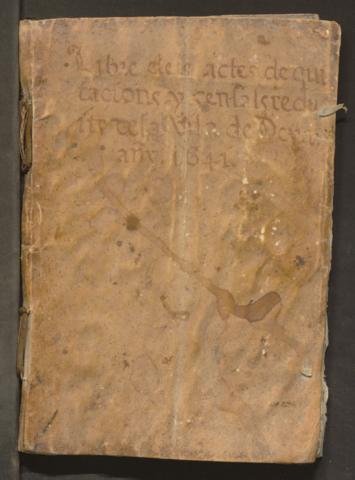 Libre dels actes de qui
tacions y censals redu
its de la Vila de
añy. 1641.